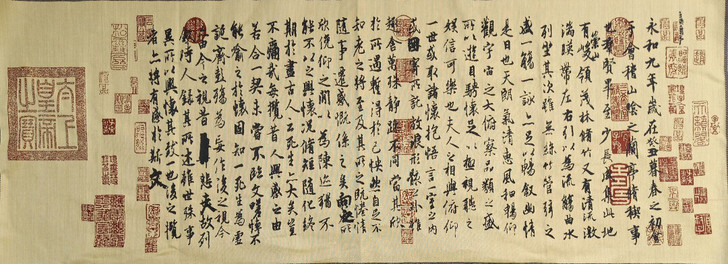 永和九年歲在癸丑暮春之初會
于會稽山陰之蘭亭脩稧事
也羣賢畢至少長咸集此地
有崇山峻領茂林脩竹又有清流激
湍暎帶左右引以為流觴曲水
列坐其次雖無絲竹管弦之
盛一觴一詠亦足以暢敘幽情
是日也天朗氣清惠風和暢仰
觀宇宙之大俯察品類之盛
所以遊目騁懷足以極視聽之
娛信可樂也夫人之相與俯仰
一世或取諸懷抱悟言一室之內
或因寄所託放浪形骸之外雖
趣舍萬殊靜躁不同當其欣
於所遇暫得於己快然自足不
知老之將至及其所之既惓情
隨事遷感慨係之矣向之所
欣俛仰之間以為陳迹猶不
能不以之興懷況脩短隨化終
期於盡古人云死生亦大矣豈
不痛哉每攬昔人興感之由
若合一契未嘗不臨文嗟悼不
能喻之於懷固知一死生為虛
誕齊彭殤為妄作後之視今
亦由今之視昔悲夫故列
敘時人錄其所述雖世殊事
異所以興懷其致一也後之攬
者亦將有感於斯文
太上皇帝之寶